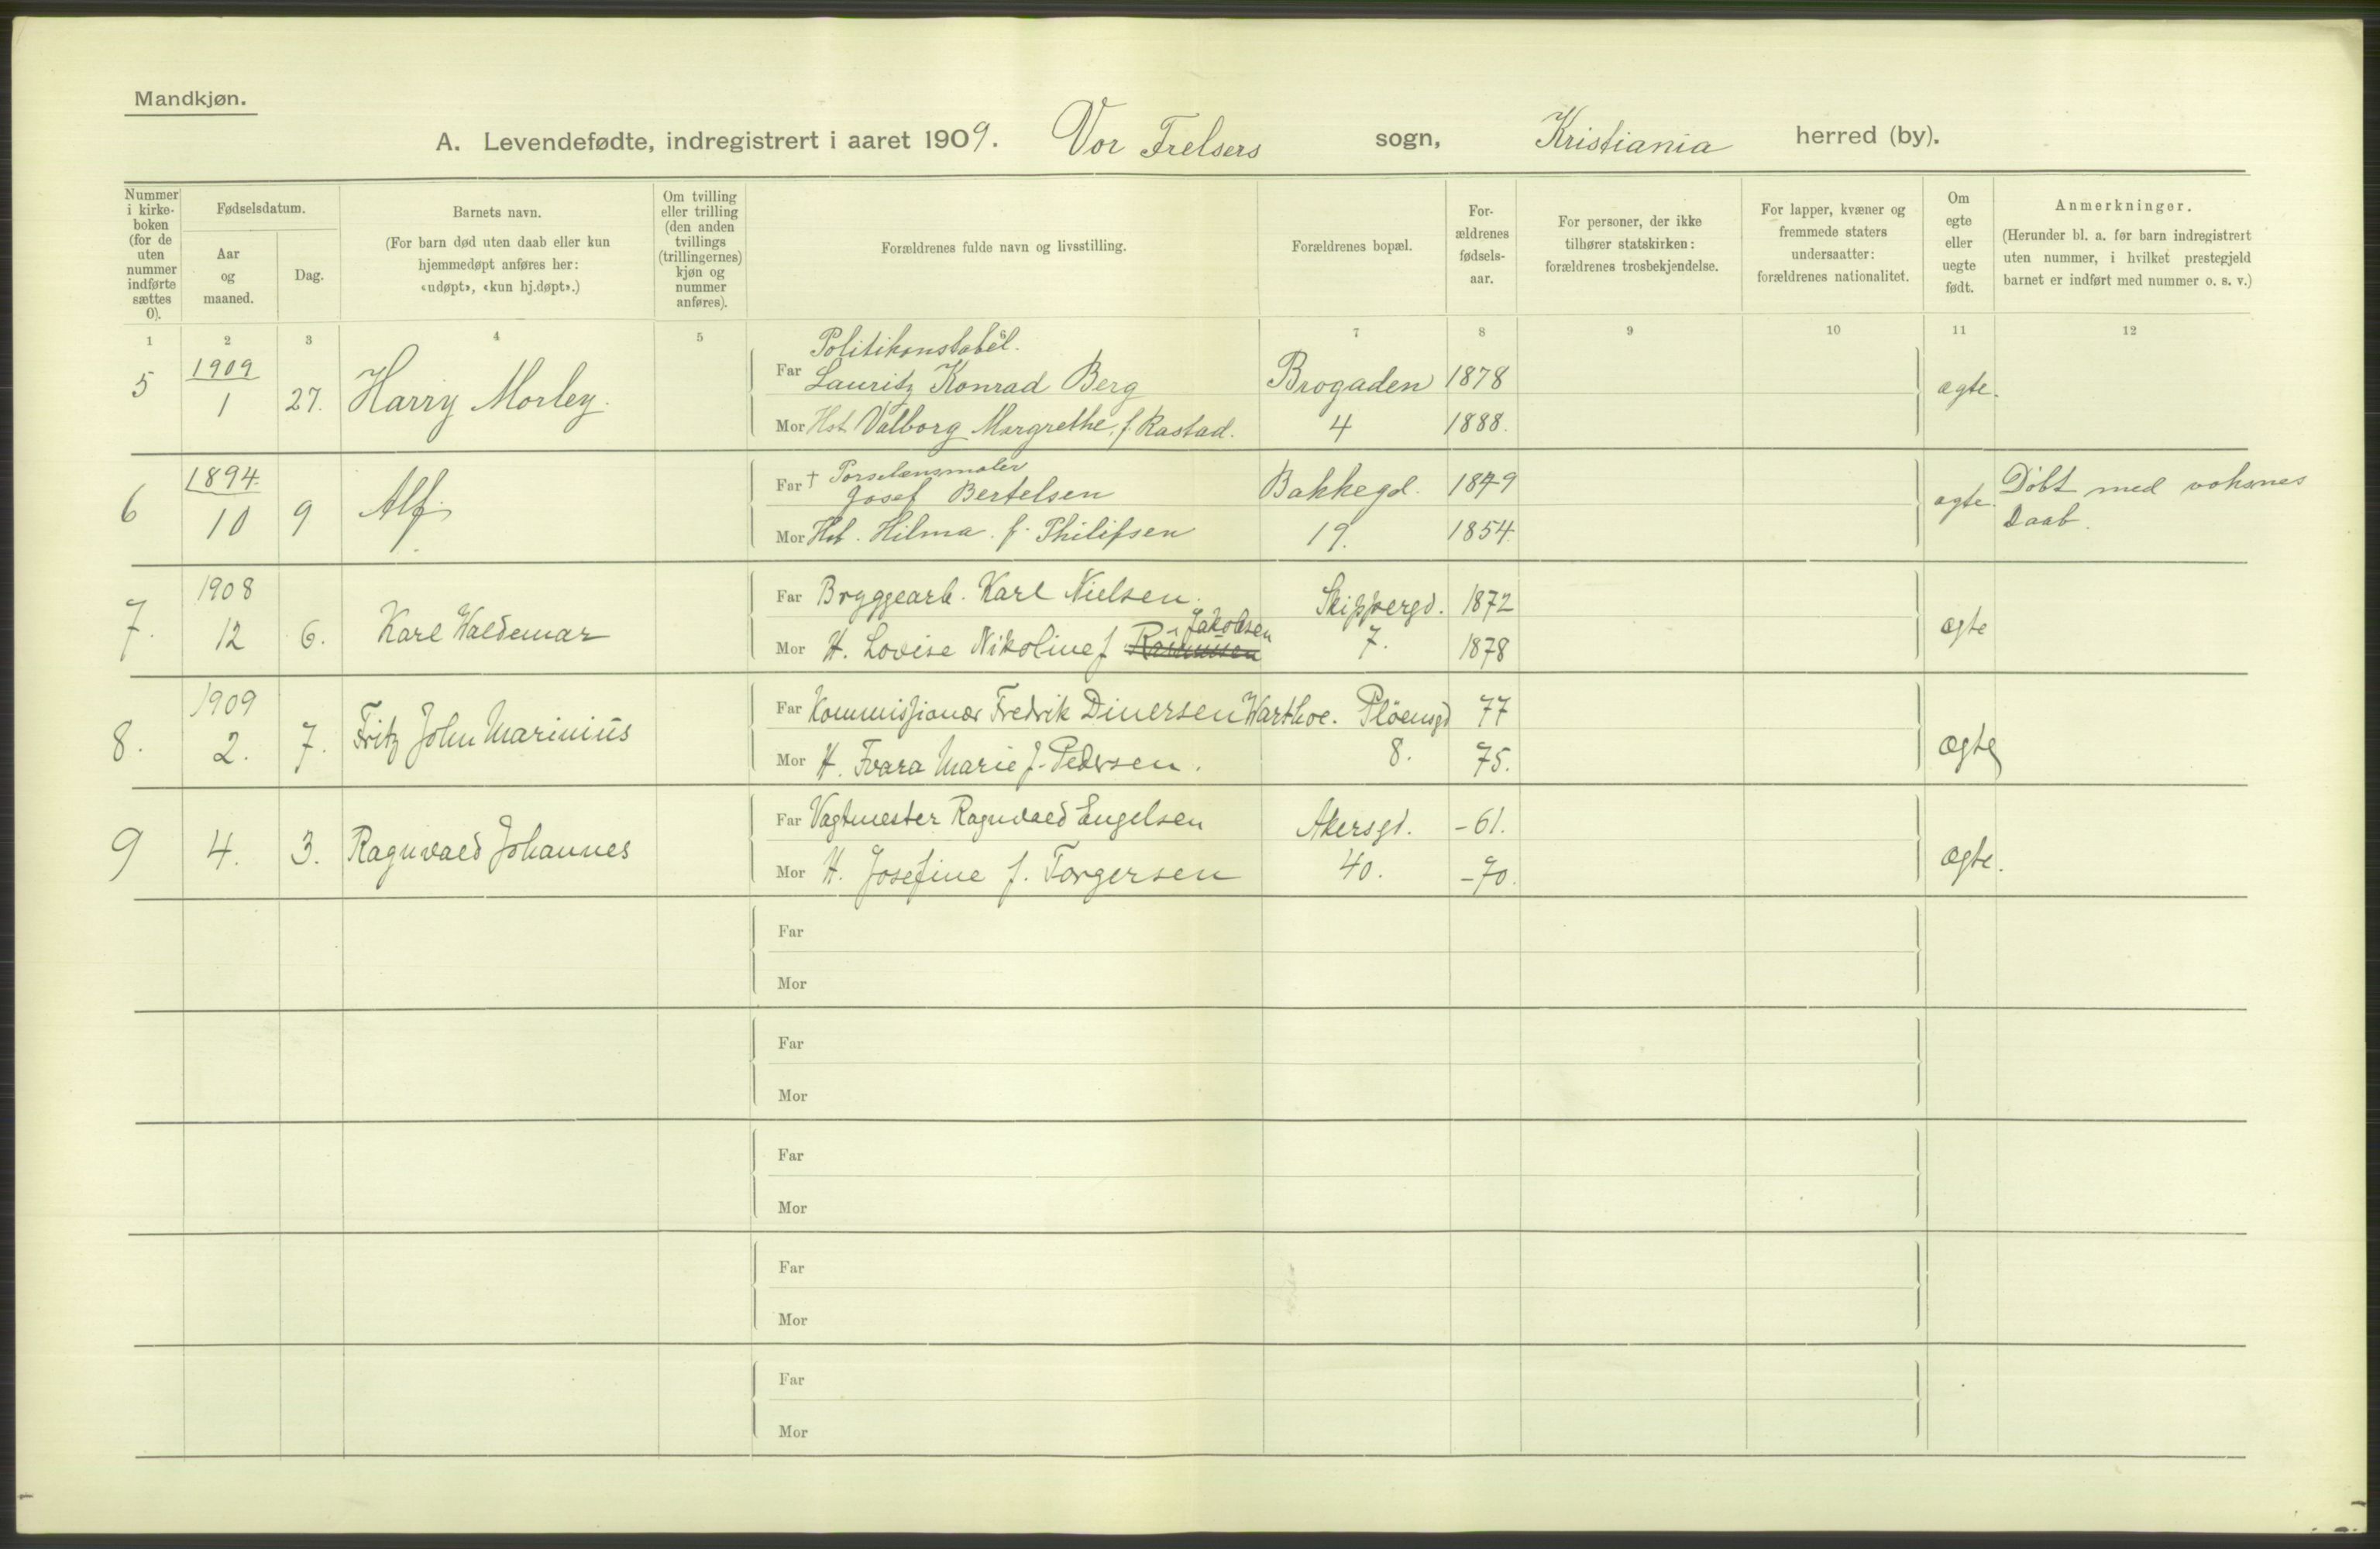 Mandkjøn.
A. Levendefødte, indregistrert i aaret 1909. Vor Frelsers sogn, Kristiania herred (by).
Nummer i kirke- boken (for de uten nummer indførte sættes 0).
Fødselsdatum.
Aar og maaned.
Dag.
Barnets navn.
(For barn død uten daab eller kun
hjemmedøpt anføres her:
«udøpt», «kun hj.døpt».)
Om tvilling
eller trilling
(den anden
tvillings
(trillingernes)
kjøn og
nummer
anføres).
Forældrenes fulde navn og livsstilling.
Forældrenes bopæl.
For-
ældrenes
fødsels-
aar.
For personer, der ikke
tilhører statskirken:
forældrenes trosbekjendelse.
For lapper, kvæner og
fremmede staters
undersaatter:
forældrenes nationalitet.
Om
egte
eller
uegte
født.
Anmerkninger.
(Herunder bl. a. for barn indregistrert
uten nummer, i hvilket prestegjeld
barnet er indført med nummer o. s. v.)
1 2 3 4 5 6 7 8 9 10 11 12
Politikonstabel.
5 1909 1 27. Harry Morley. Far Lauritz Konrad Berg Brogaden 1878 ægte.
Mor Hst. Valborg Margrethe, f. Rastad. 4 1888.
6 1894. 10 9 Alf. Far † Porselænsmaler
Josef Bertelsen Bakkegd. 1849 ægte. Døbt med voksnes
Daab.
Mor Hst. Hilma. f. Philipsen 19. 1854.
7. 1908 12 6. Karl Waldemar Far Bryggearb. Karl Nielsen. Skippergd. 1872 ægte
Mor H. Lovise Nikoline f Rasmussen Jakobsen 7. 1878
8. 1909 2. 7. Fritz John Marinius Far Kommissionær Fredrik Dinersen Warthoe. Pløensgd 77 ægte
Mor H. Tvara Marie f. Pedersen. 8. 75.
9 4. 3. Ragnvald Johannes Far Vagtmester Ragnvald Engelsen Akersgd. -61. ægte.
Mor H. Josefine f. Torgersen 40. -70.
Far
Mor
Far
Mor
Far
Mor
Far
Mor
Far
Mor